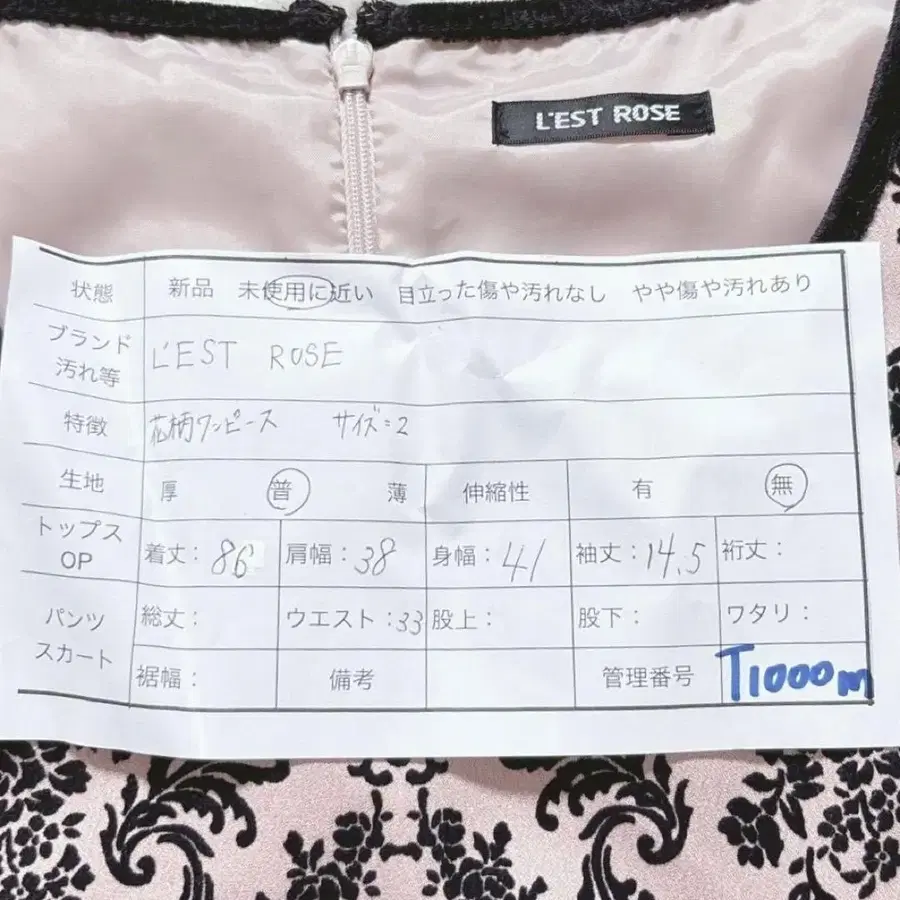 L'EST ROSE
状態 新品 未使用に近い 目立った傷や汚れなし やや傷や汚れあり
ブランド
汚れ等
L'EST ROSE
特徴 花柄ワンピース サイズ=2
生地 厚 普 薄 伸縮性 有 無
トップス
OP
着丈:86 肩幅:38 身幅:41 袖丈:14.5 裄丈:
パンツ
スカート
総丈: ウエスト:33 股上: 股下: ワタリ:
裾幅: 備考 管理番号 T1000m